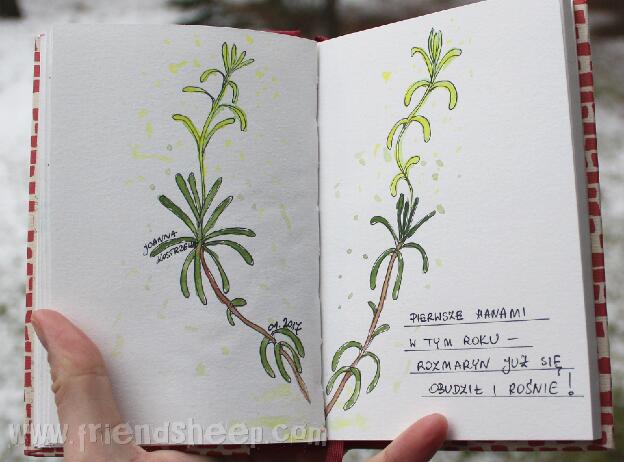 JOANNA
KOSTRZEWA
01.2017
PIERWSZE HANAMI
W TYM ROKU –
ROZMARYN JUŻ SIĘ
OBUDZIŁ I ROŚNIE!
www.friendsheep.com